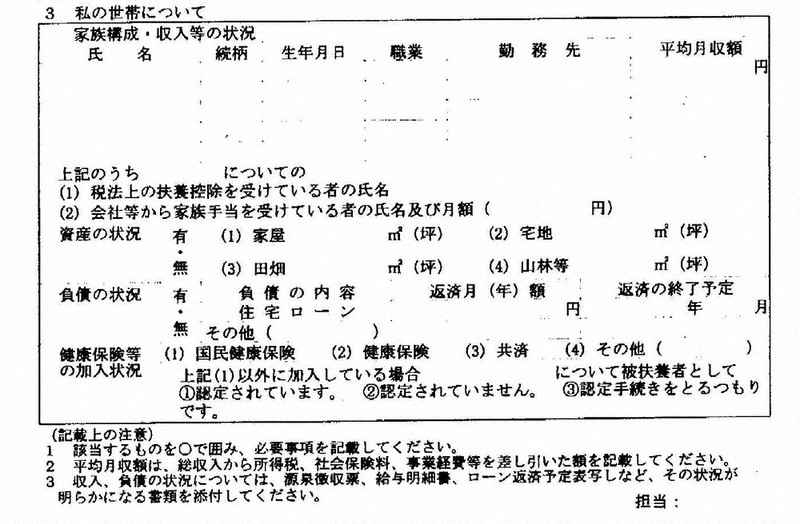 3 私の世帯について
家族構成・収入等の状況
氏 名 続柄 生年月日 職業 勤務先 平均月収額
円
上記のうち についての
(1) 税法上の扶養控除を受けている者の氏名
(2) 会社等から家族手当を受けている者の氏名及び月額 ( 円)
資産の状況 有 (1) 家屋 ㎡ (坪) (2) 宅地 ㎡ (坪)
・
無 (3) 田畑 ㎡ (坪) (4) 山林等 ㎡ (坪)
負債の状況 有 負債の内容 返済月 (年) 額 返済の終了予定
・ 住宅ローン 円 年 月
無 その他 ( )
健康保険等 (1) 国民健康保険 (2) 健康保険 (3) 共済 (4) その他 ( )
の加入状況 上記(1)以外に加入している場合 について被扶養者として
①認定されています。 ②認定されていません。 ③認定手続きをとるつもり
です。
(記載上の注意)
1 該当するものを○で囲み、必要事項を記載してください。
2 平均月収額は、総収入から所得税、社会保険料、事業経費等を差し引いた額を記載してください。
3 収入、負債の状況については、源泉徴収票、給与明細書、ローン返済予定表写しなど、その状況が
明らかになる書類を添付してください。
担当：